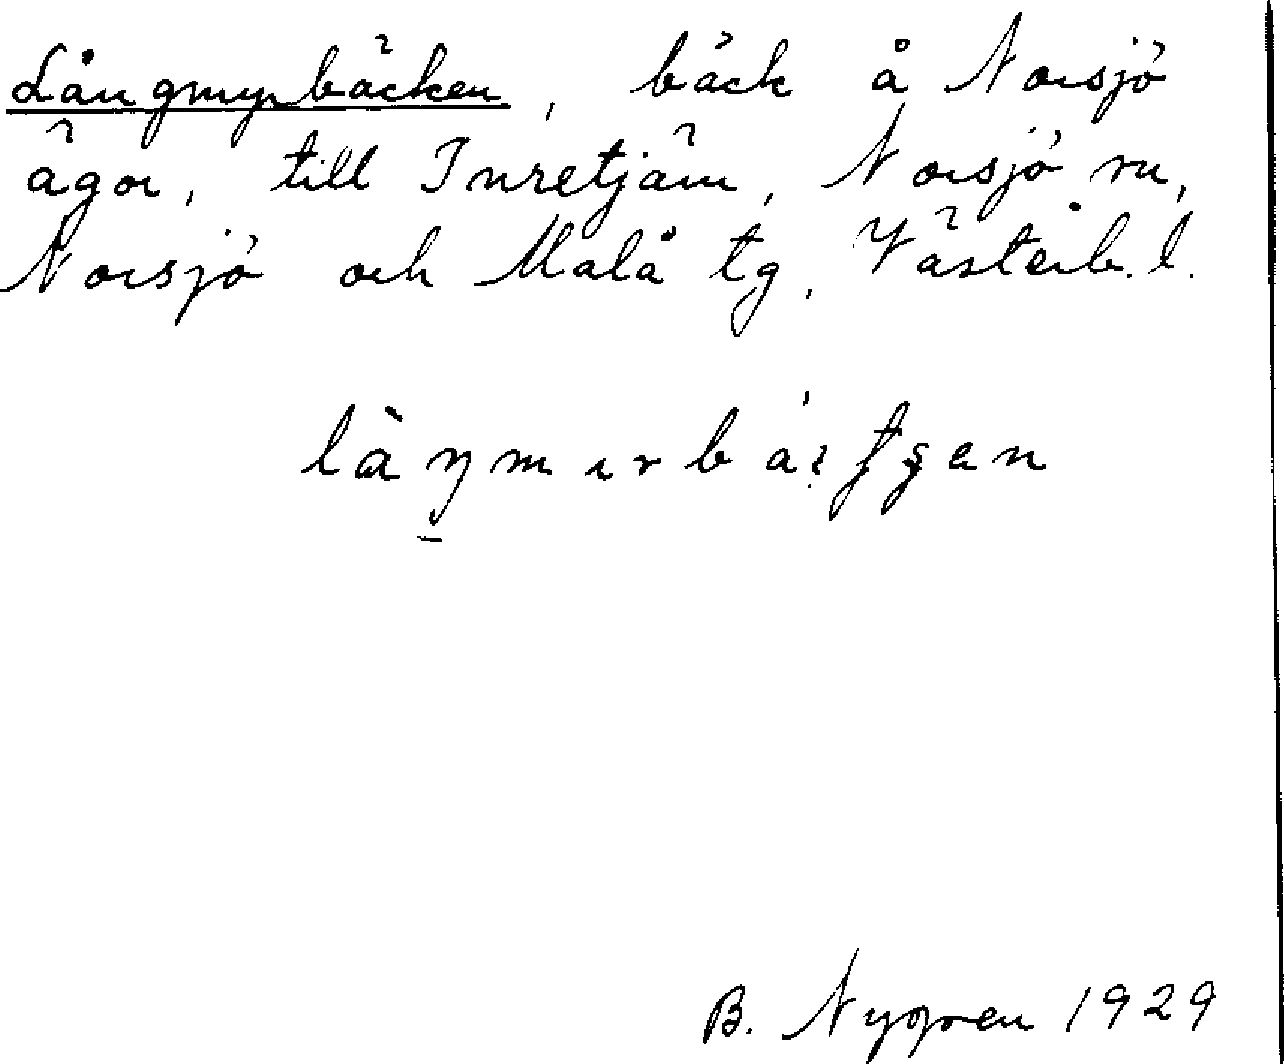 Långmyrbäcken, bäck å Norsjö
ägor, till Inretjärn, Norsjö sn,
Norsjö och Malå tg, Västerb. l.
B. Nygren 1929